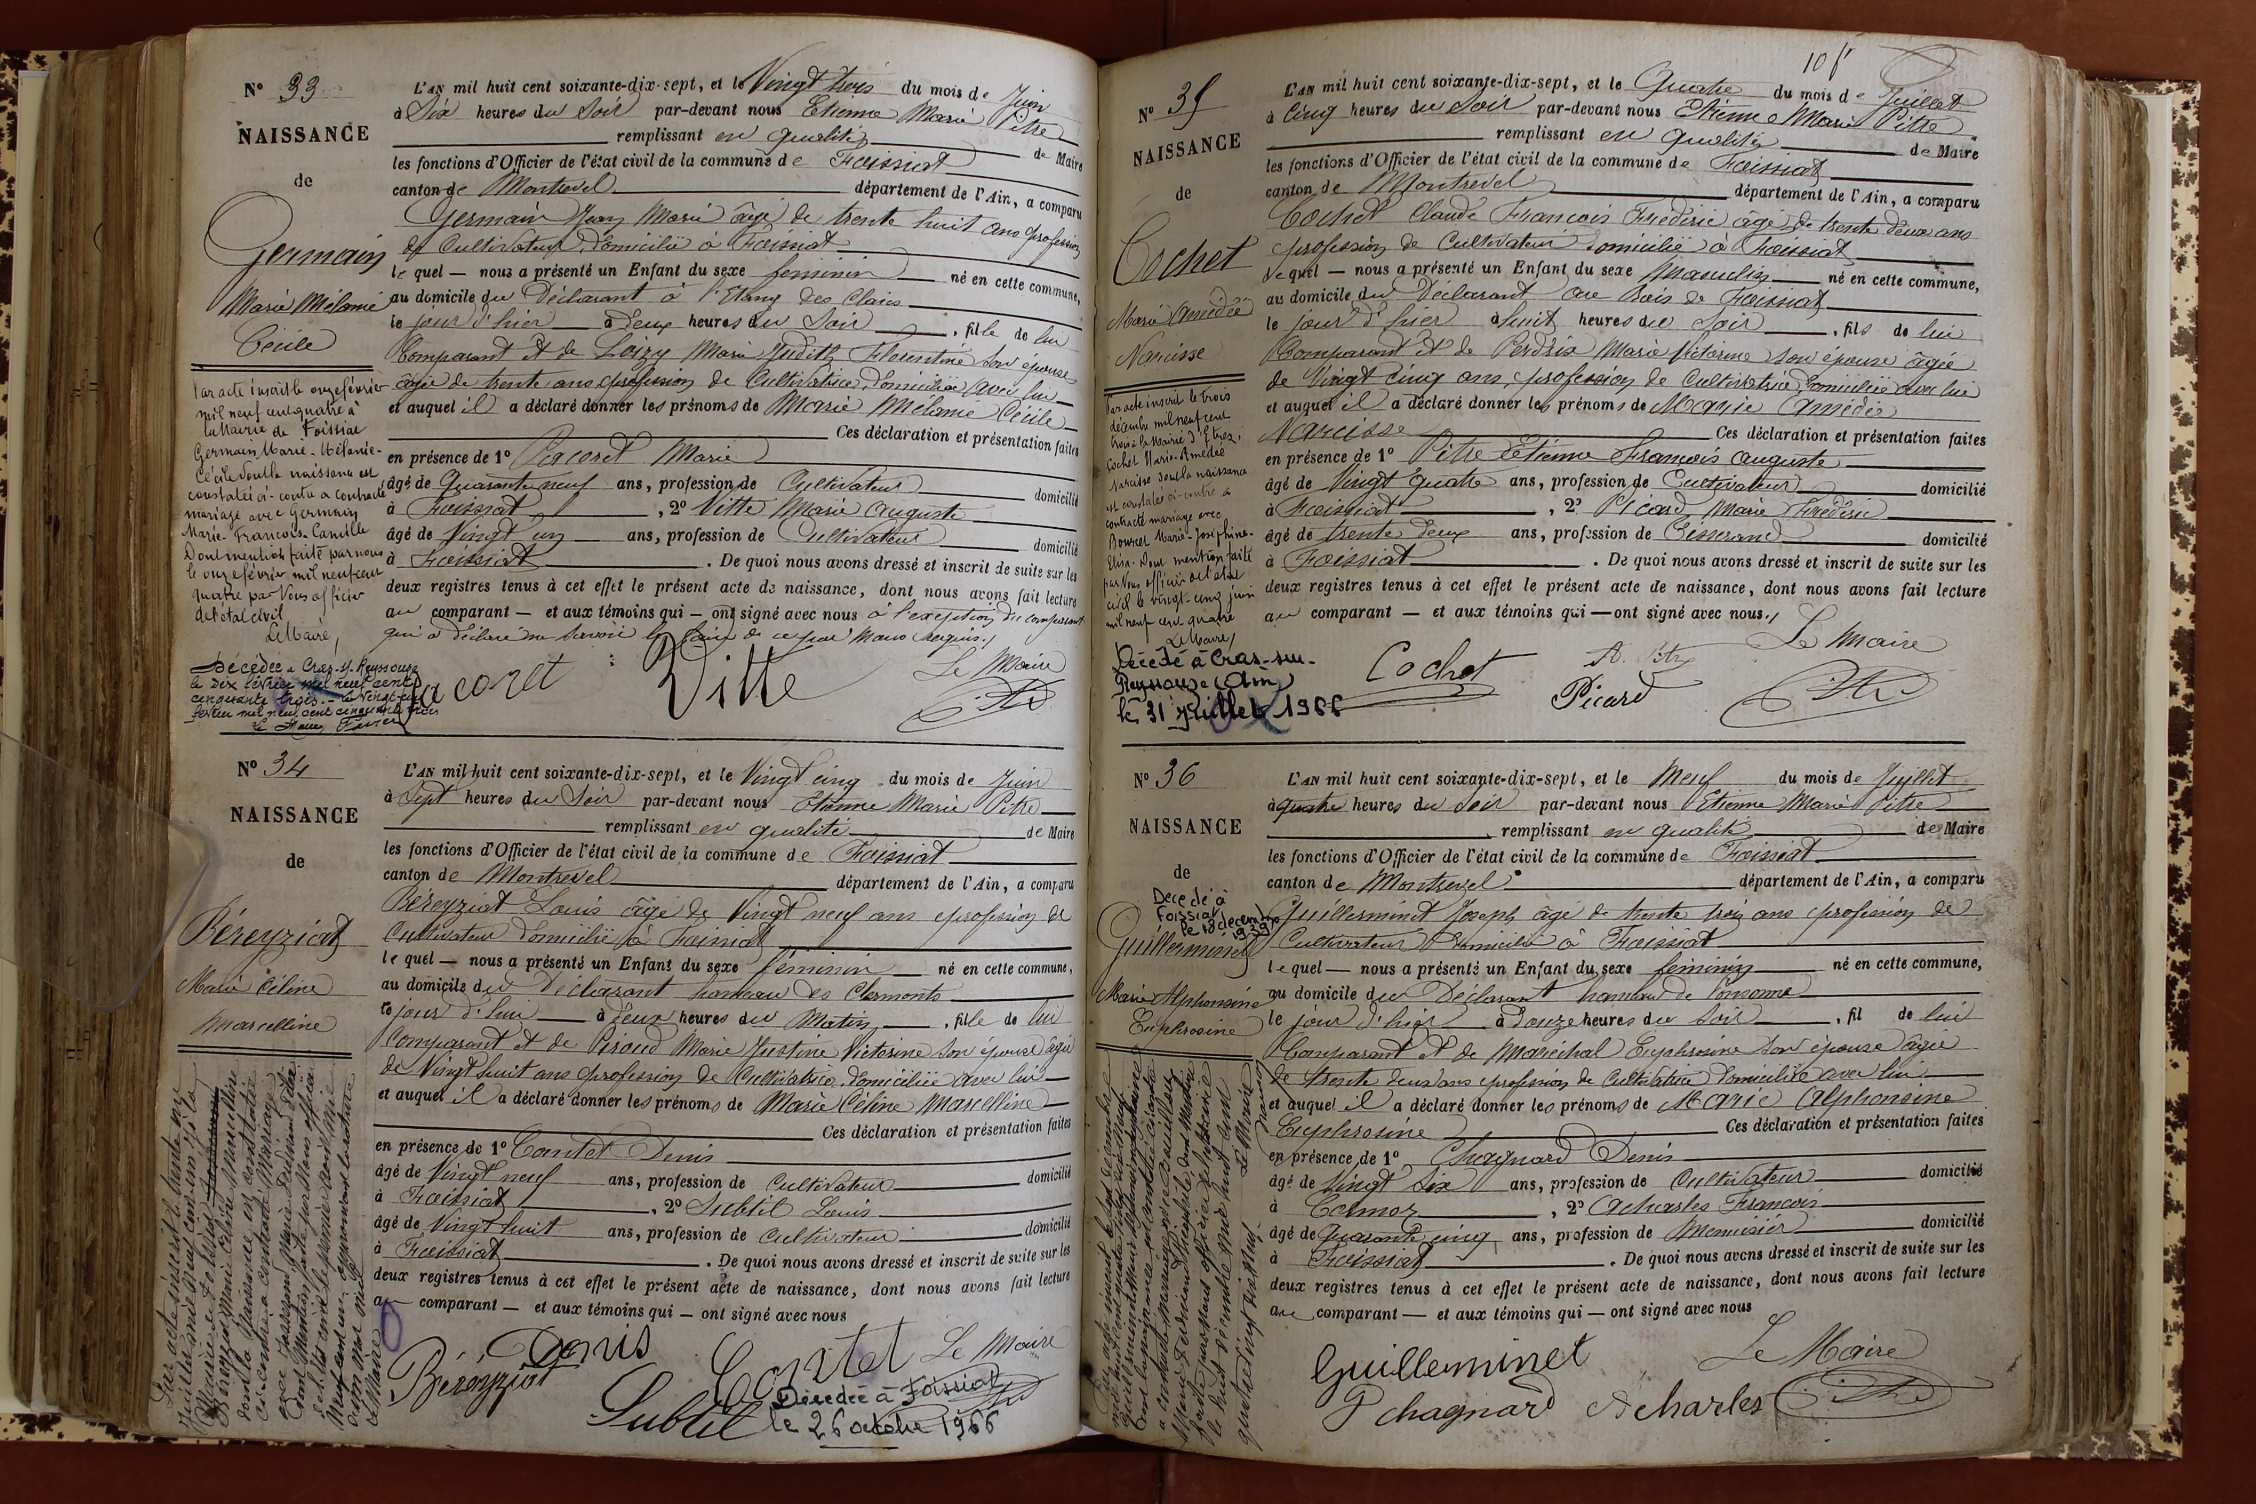 N° 33
NAISSANCE
de
Germain
Marie Mélanie
Cécile
Par acte inscrit le onze février
mil neuf cent quatre à
la Mairie de Foissiat
Germain Marie-Mélanie-
Cécile dont la naissance est
constatée ci-contre a contracté
mariage avec Germain
Marie-François-Camille
Dont mention faite par nous
le onze février mil neuf cent
quatre par Nous officier
de l'état civil
Le Maire,
Décédée à Cras-s/-Reyssouze
le dix février mil neuf cent
cinquante trois. - le vingt
février mil neuf cent cinquante trois
Le Maire
L'AN mil huit cent soixante-dix-sept, et le Vingt trois du mois de Juin
à Six heures du Soir par-devant nous Etienne Marie Pitre
remplissant en qualité de Maire
les fonctions d'Officier de l'état civil de la commune de Foissiat
canton de Montrevel département de l'Ain, a comparu
Germain Jean Marie âgé de trente huit ans profession
de Cultivateur, domicilié à Foissiat
lequel — nous a présenté un Enfant du sexe féminin né en cette commune,
au domicile du Déclarant à l'Etang des Claies
le jour d'hier à Deux heures du Soir, fille de lui
Comparant et de Loizy Marie Judith Florentine son épouse
âgée de trente ans, profession de Cultivatrice, domiciliée avec lui
et auquel il a déclaré donner les prénoms de Marie Mélanie Cécile
Ces déclaration et présentation faites
en présence de 1° Pacoret Marie
âgé de Quarante neuf ans, profession de Cultivateur domicilié
à Foissiat, 2° Vitte Marie Auguste
âgé de Vingt un ans, profession de Cultivateur domicilié
à Foissiat. De quoi nous avons dressé et inscrit de suite sur les
deux registres tenus à cet effet le présent acte de naissance, dont nous avons fait lecture
au comparant — et aux témoins qui — ont signé avec nous à l'exception du comparant
qui a déclaré ne savoir le faire de ce par Nous requis./
Pacoret Vitte Le Maire
N° 34
NAISSANCE
de
Béreyziat
Marie Céline
Marcelline
L'AN mil huit cent soixante-dix-sept, et le Vingt cinq du mois de Juin
à Sept heures du Soir par-devant nous Etienne Marie Pitre
remplissant en qualité de Maire
les fonctions d'Officier de l'état civil de la commune de Foissiat
canton de Montrevel département de l'Ain, a comparu
Béreyziat Louis âgé de Vingt neuf ans profession de
Cultivateur domicilié à Foissiat
lequel — nous a présenté un Enfant du sexe féminin né en cette commune,
au domicile du Déclarant hameau des Clermonts
le jour d'hui à Deux heures du Matin, fille de lui
Comparant et de Piroud Marie Justine Victorine son épouse âgée
de Vingt huit ans profession de Cultivatrice domiciliée avec lui
et auquel il a déclaré donner les prénoms de Marie Céline Marcelline
Ces déclaration et présentation faites
en présence de 1° Contet Denis
âgé de Vingt neuf ans, profession de Cultivateur domicilié
à Foissiat, 2° Subtil Louis
âgé de Vingt huit ans, profession de Cultivateur domicilié
à Foissiat. De quoi nous avons dressé et inscrit de suite sur les
deux registres tenus à cet effet le présent acte de naissance, dont nous avons fait lecture
au comparant — et aux témoins qui — ont signé avec nous
Béreyziat Denis Contet Le Maire
Subtil
Décédée à Foissiat
le 26 octobre 1966
N° 35
NAISSANCE
de
Cochet
Marie Amédée
Narcisse
Par acte inscrit le trois
décembre mil neuf cent
trois à la Mairie d'Etrez,
Cochet Marie-Amédée
Narcisse dont la naissance
est constatée ci-contre a
contracté mariage avec
Bourcet Marie-Joséphine-
Elisa. Dont mention faite
par Nous officier de l'état
civil le vingt-cinq juin
mil neuf cent quatre
Le Maire,
Décédé à Cras-sur-
Reyssouze (Ain)
le 31 Juillet 1966
105
L'AN mil huit cent soixante-dix-sept, et le Quatre du mois de Juillet
à Cinq heures du Soir par-devant nous Etienne Marie Pitre
remplissant en qualité de Maire
les fonctions d'Officier de l'état civil de la commune de Foissiat
canton de Montrevel département de l'Ain, a comparu
Cochet Claude François Frédéric âgé de trente deux ans
profession de Cultivateur domicilié à Foissiat
lequel — nous a présenté un Enfant du sexe Masculin né en cette commune,
au domicile du Déclarant au Bois de Foissiat
le jour d'hier à huit heures du Soir, fils de lui
Comparant et de Perdrix Marie Victorine son épouse âgée
de Vingt cinq ans, profession de Cultivatrice domiciliée avec lui
et auquel il a déclaré donner les prénoms de Marie Amédée
Narcisse Ces déclaration et présentation faites
en présence de 1° Pitre Etienne François Auguste
âgé de Vingt Quatre ans, profession de Cultivateur domicilié
à Foissiat, 2° Picard Marie Frédéric
âgé de trente Deux ans, profession de Tisserand domicilié
à Foissiat. De quoi nous avons dressé et inscrit de suite sur les
deux registres tenus à cet effet le présent acte de naissance, dont nous avons fait lecture
au comparant — et aux témoins qui — ont signé avec nous./
Cochet A. Pitre Le Maire
Picard
N° 36
NAISSANCE
de
Décédé à
Foissiat
le 18 décembre
1939
Guilleminet
Marie Alphonsine
Euphrosine
L'AN mil huit cent soixante-dix-sept, et le Neuf du mois de Juillet
à quatre heures du Soir par-devant nous Etienne Marie Pitre
remplissant en qualité de Maire
les fonctions d'Officier de l'état civil de la commune de Foissiat
canton de Montrevel département de l'Ain, a comparu
Guilleminet Joseph âgé de trente trois ans profession de
Cultivateur Domicilié à Foissiat
lequel — nous a présenté un Enfant du sexe féminin né en cette commune,
au domicile du Déclarant hameau de
le jour d'hier à Douze heures du Soir, fil de lui
Comparant et de Maréchal Euphrosine son épouse âgée
de trente deux ans profession de Cultivatrice domiciliée avec lui
et auquel il a déclaré donner les prénoms de Marie Alphonsine
Euphrosine Ces déclaration et présentation faites
en présence de 1° Chagnard Denis
âgé de Vingt Six ans, profession de Cultivateur domicilié
à, 2° Acharles François
âgé de Quarante cinq ans, profession de Menuisier domicilié
à Foissiat. De quoi nous avons dressé et inscrit de suite sur les
deux registres tenus à cet effet le présent acte de naissance, dont nous avons fait lecture
au comparant — et aux témoins qui — ont signé avec nous
Guilleminet Le Maire
Chagnard Acharles